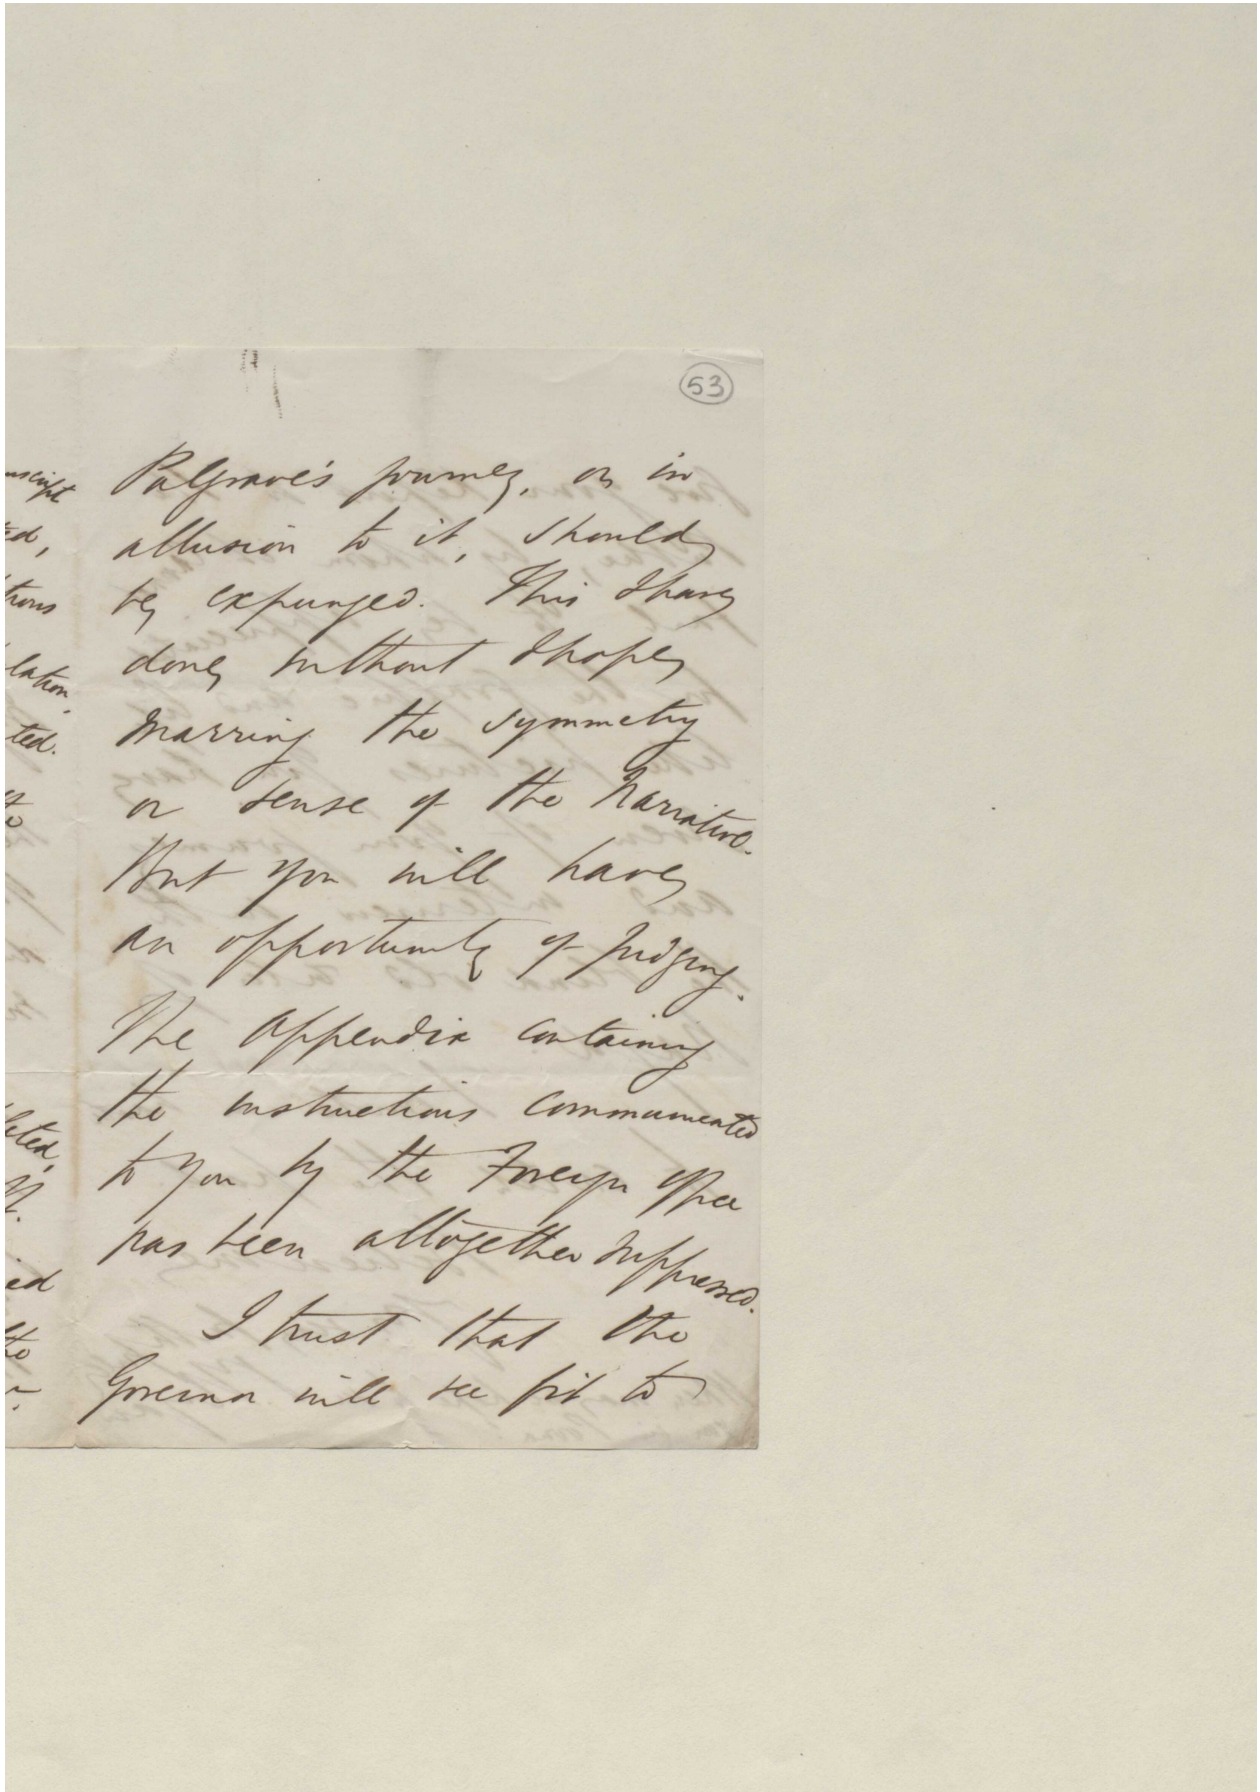 53
Palgrave's journey, or in
allusion to it, should
be expunged. This I have
done, without I hope,
marring the symmetry
or sense of the Narrative.
But you will have
an opportunity of judging.
The Appendix containing
the instructions communicated
to you by the Foreign Office
has been altogether suppressed.
I trust that the
Governor will see fit to